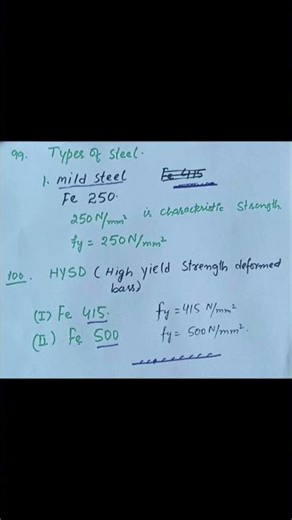 99. Types of Steel.
1. mild steel Fe 415
Fe 250.
250 N/mm² is characteristic Strength
fy = 250 N/mm²
100. HYSD (High yield Strength deformed
bars)
(I) Fe 415. fy = 415 N/mm²
(II) Fe 500 fy = 500 N/mm².